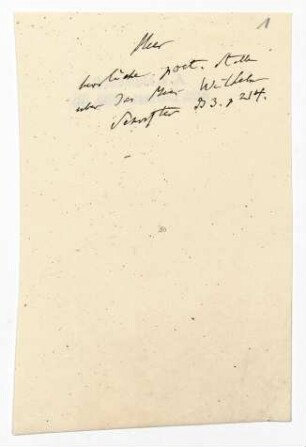 1
Meer
herrliche poet. Stelle
über das Meer Wilhelm
B 3. p 254.